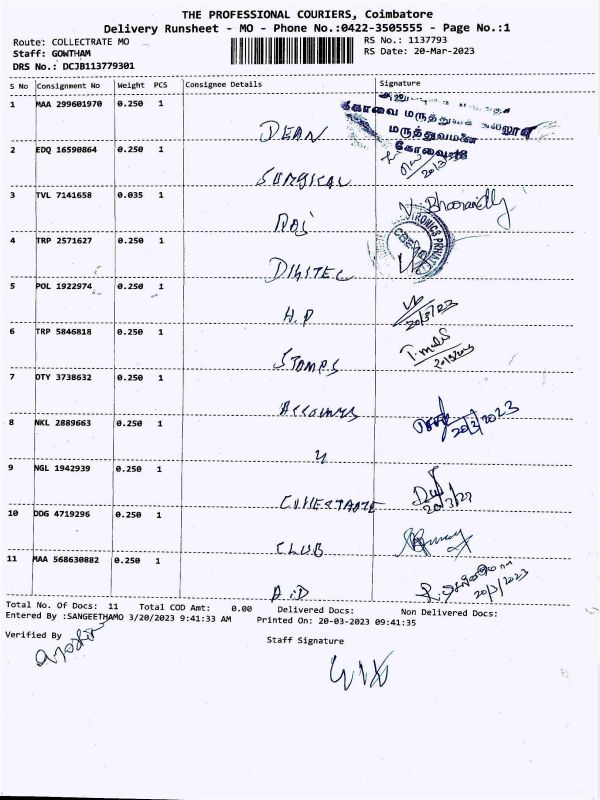 THE PROFESSIONAL COURIERS, Coimbatore
Delivery Runsheet - MO - Phone No.:0422-3505555 - Page No.:1
Route: COLLECTRATE MO
RS No.: 1137793
Staff: GOWTHAM
RS Date: 20-Mar-2023
DRS No.: DCJB113779301
S No Consignment No Weight PCS Consignee Details Signature
1 MAA 299601970 0.250 1 DEAN
கோவை மருத்துவக்
மருத்துவமனை
2 EDQ 16590864 0.250 1 SURGICAL
3 TVL 7141658 0.035 1
4 TRP 2571627 0.250 1 DIGITEC
5 POL 1922974 0.250 1 H.P 20/3/23
6 TRP 5846818 0.250 1 STAMPS 20/3/2023
7 OTY 3738632 0.250 1 ACCOUNTS 20/3/2023
8 NKL 2889663 0.250 1 4
9 NGL 1942939 0.250 1 COLLECTRATE
10 DDG 4719296 0.250 1 CLUB
11 MAA 568630882 0.250 1 A.D 20/3/2023
Total No. Of Docs: 11 Total COD Amt: 0.00 Delivered Docs: Non Delivered Docs:
Entered By :SANGEETHAMO 3/20/2023 9:41:33 AM Printed On: 20-03-2023 09:41:35
Verified By
Staff Signature